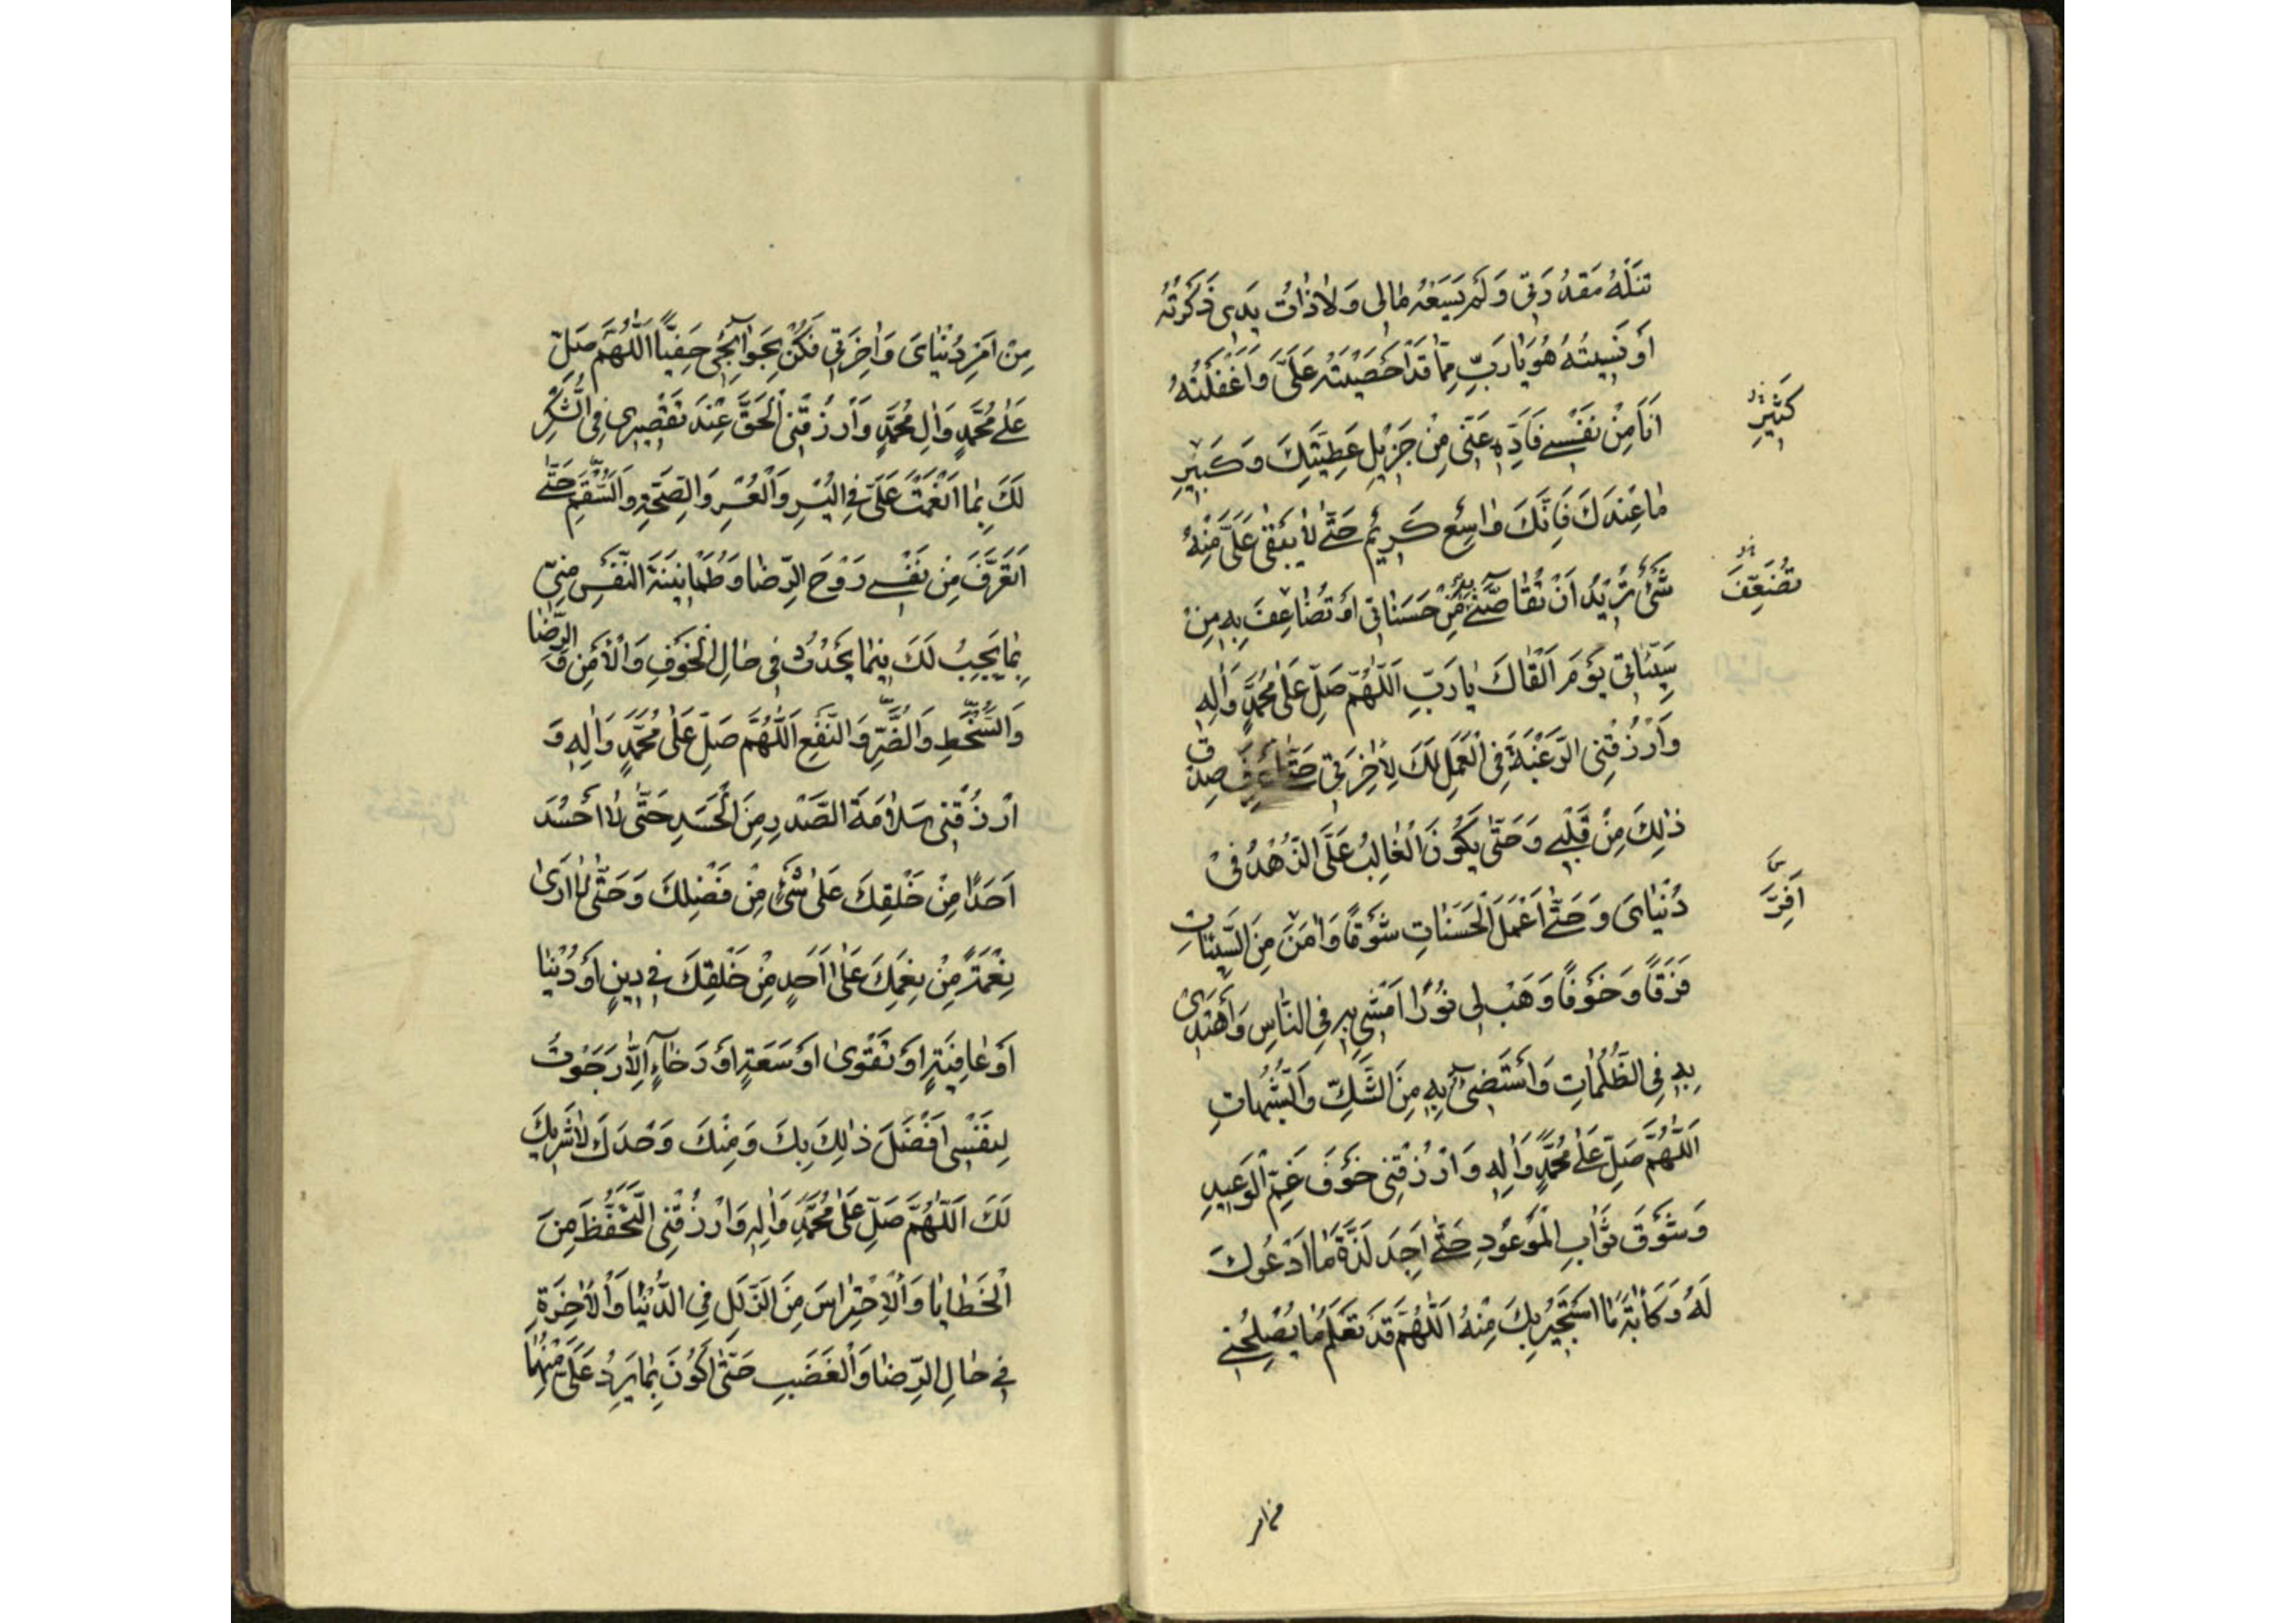 تَنَلْهُ مَقْدُرَتِي وَلَمْ يَسَعْهُ مَالِي وَلَا ذَاتُ يَدِي ذَكَرْتُهُ
أَوْ نَسِيتُهُ هُوَ يَا رَبِّ مِمَّا قَدْ أَحْصَيْتَهُ عَلَيَّ وَأَغْفَلْتُهُ
أَنَا مِنْ نَفْسِي فَأَدِّهِ عَنِّي مِنْ جَزِيلِ عَطِيَّتِكَ وَكَبِيرِ
كَثِيرِ
مَا عِنْدَكَ فَإِنَّكَ وَاسِعٌ كَرِيمٌ حَتَّى لَا يَبْقَى عَلَيَّ مِنْهُ
شَيْءٌ تُرِيدُ أَنْ تُقَاصَّنِي بِهِ مِنْ حَسَنَاتِي أَوْ تُضَاعِفَ بِهِ مِنْ
تُضَعِّفَ
سَيِّئَاتِي يَوْمَ أَلْقَاكَ يَا رَبِّ اَللّٰهُمَّ صَلِّ عَلَى مُحَمَّدٍ وَآلِهِ
وَارْزُقْنِي الرَّغْبَةَ فِي الْعَمَلِ لَكَ لِآخِرَتِي حَتَّى أَعْرِفَ صِدْقَ
ذٰلِكَ مِنْ قَلْبِي وَحَتَّى يَكُونَ الْغَالِبُ عَلَيَّ الزُّهْدُ فِي
دُنْيَايَ وَحَتَّى أَعْمَلَ الْحَسَنَاتِ شَوْقًا وَآمَنَ مِنَ السَّيِّئَاتِ
أَفِرَّ
فَرَقًا وَخَوْفًا وَهَبْ لِي نُورًا أَمْشِي بِهِ فِي النَّاسِ وَأَهْتَدِي
بِهِ فِي الظُّلُمَاتِ وَأَسْتَضِيءُ بِهِ مِنَ الشَّكِّ وَالشُّبُهَاتِ
اَللّٰهُمَّ صَلِّ عَلَى مُحَمَّدٍ وَآلِهِ وَارْزُقْنِي خَوْفَ غَمِّ الْوَعِيدِ
وَشَوْقَ ثَوَابِ الْمَوْعُودِ حَتَّى أَجِدَ لَذَّةَ مَا أَدْعُوكَ
لَهُ وَكَأْبَةَ مَا أَسْتَجِيرُ بِكَ مِنْهُ اَللّٰهُمَّ قَدْ تَعْلَمُ مَا يُصْلِحُنِي
مِنْ أَمْرِ
مِنْ أَمْرِ دُنْيَايَ وَآخِرَتِي فَكُنْ بِحَوَائِجِي حَفِيًّا اَللّٰهُمَّ صَلِّ
عَلَى مُحَمَّدٍ وَآلِ مُحَمَّدٍ وَارْزُقْنِي الْحَقَّ عِنْدَ تَقْصِيرِي فِي الشُّكْرِ
لَكَ بِمَا أَنْعَمْتَ عَلَيَّ فِي الْيُسْرِ وَالْعُسْرِ وَالصِّحَّةِ وَالسَّقَمِ حَتَّى
أَتَعَرَّفَ مِنْ نَفْسِي رَوْحَ الرِّضَا وَطُمَأْنِينَةَ النَّفْسِ مِنِّي
بِمَا يَجِبُ لَكَ فِيمَا يَحْدُثُ فِي حَالِ الْخَوْفِ وَالْأَمْنِ وَالرِّضَا
وَالسُّخْطِ وَالضَّرِّ وَالنَّفْعِ اَللّٰهُمَّ صَلِّ عَلَى مُحَمَّدٍ وَآلِهِ وَ
ارْزُقْنِي سَلَامَةَ الصَّدْرِ مِنَ الْحَسَدِ حَتَّى لَا أَحْسُدَ
أَحَدًا مِنْ خَلْقِكَ عَلَى شَيْءٍ مِنْ فَضْلِكَ وَحَتَّى لَا أَرَى
نِعْمَةً مِنْ نِعَمِكَ عَلَى أَحَدٍ مِنْ خَلْقِكَ فِي دِينٍ أَوْ دُنْيَا
أَوْ عَافِيَةٍ أَوْ تَقْوَى أَوْ سَعَةٍ أَوْ رَخَاءٍ إِلَّا رَجَوْتُ
لِنَفْسِي أَفْضَلَ ذٰلِكَ بِكَ وَمِنْكَ وَحْدَكَ لَا شَرِيكَ
لَكَ اَللّٰهُمَّ صَلِّ عَلَى مُحَمَّدٍ وَآلِهِ وَارْزُقْنِي التَّحَفُّظَ مِنَ
الْخَطَايَا وَالْاِحْتِرَاسَ مِنَ الزَّلَلِ فِي الدُّنْيَا وَالْآخِرَةِ
فِي حَالِ الرِّضَا وَالْغَضَبِ حَتَّى أَكُونَ بِمَا يَرِدُ عَلَيَّ مِنْهُمَا